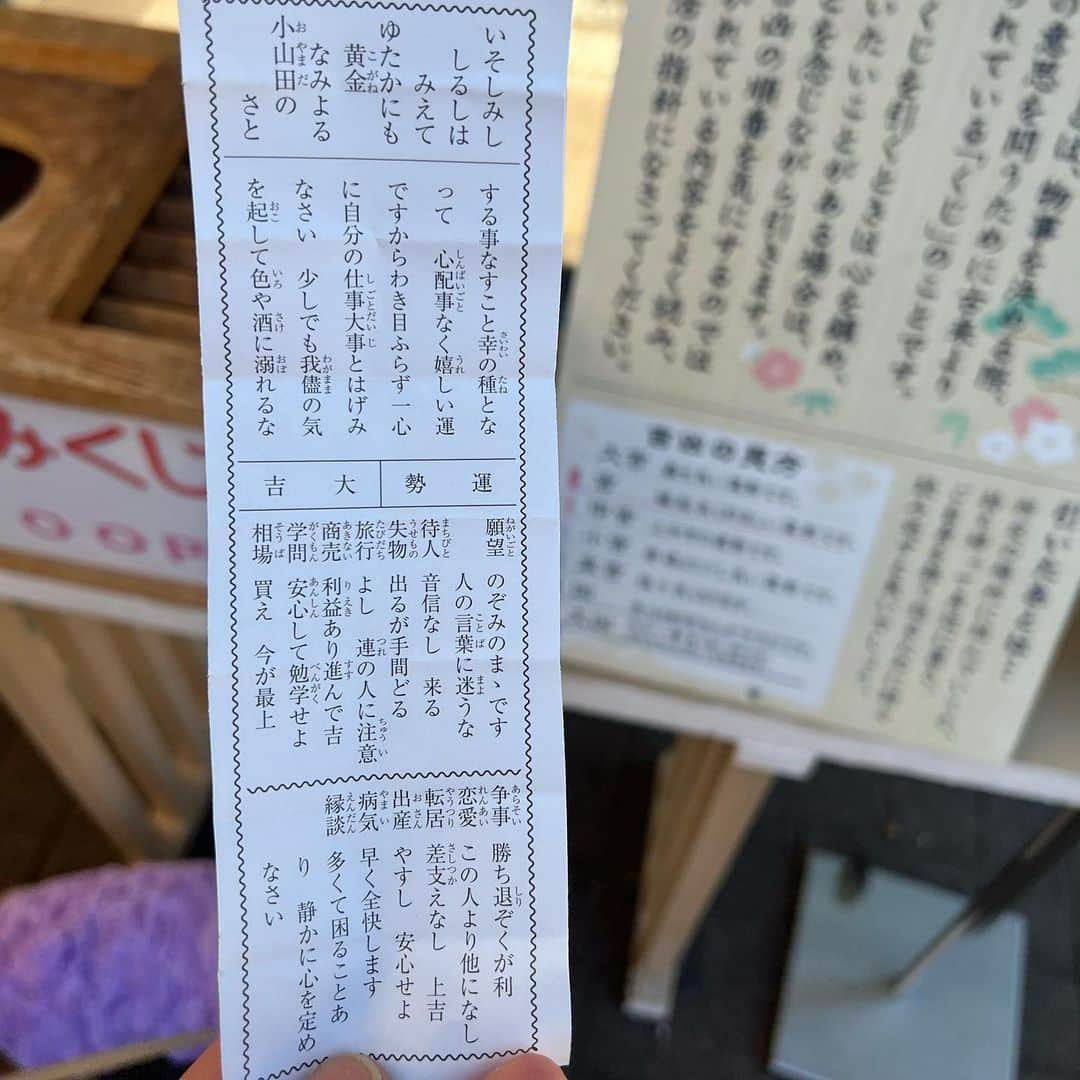 いそしみし
しるしは
みえて
ゆたかにも
黄金
なみよる
小山田の
さと
する事なすこと幸の種とな
って 心配事なく嬉しい運
ですからわき目ふらず一心
に自分の仕事大事とはげみ
なさい 少しでも我儘の気
を起して色や酒に溺れるな
運勢
大吉
願望 のぞみのまゝです
人の言葉に迷うな
待人 音信なし 来る
失物 出るが手間どる
旅行 よし 連の人に注意
商売 利益あり進んで吉
学問 安心して勉学せよ
相場 買え 今が最上
争事 勝ち退ぞくが利
恋愛 この人より他になし
転居 差支えなし 上吉
出産 やすし 安心せよ
病気 早く全快します
縁談 多くて困ることあ
り 静かに心を定め
なさい
は、物事を決める際、
の意思を問うために古来より
られている「くじ」のことです。
くじを引くときは心を鎮め、
いたいことがある場合は、
とを念じながら引きます。
凶の順番を気にするのでは
かれている内容をよく読み、
活の指針になさってください。
吉凶の見方
みくじ